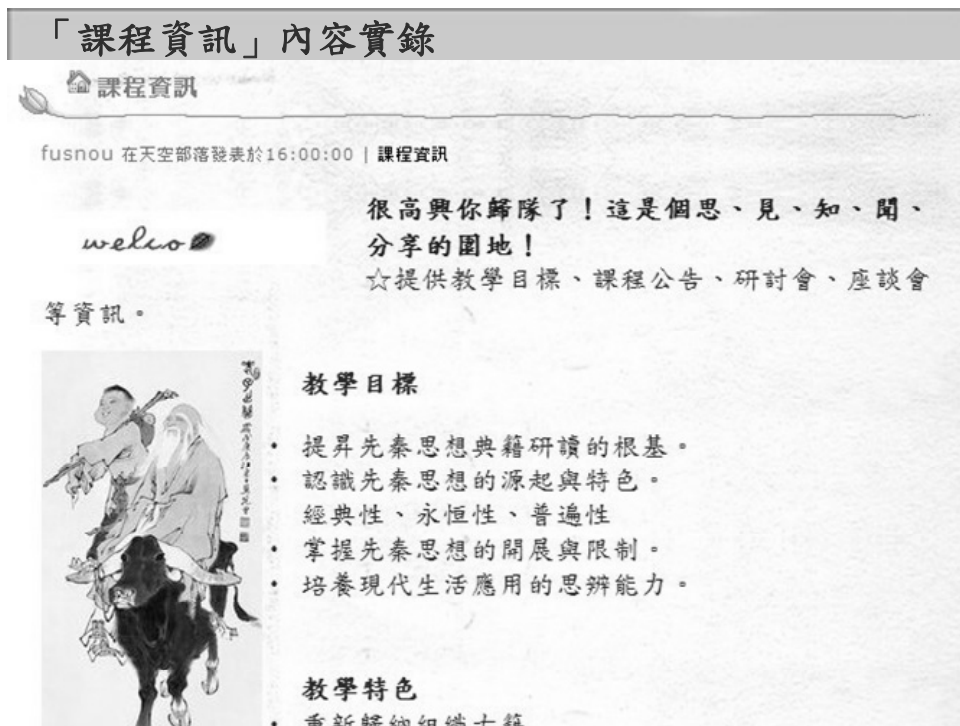 「課程資訊」內容實錄
課程資訊
fusnou 在天空部落發表於16:00:00 | 課程資訊
welco
很高興你歸隊了！這是個思、見、知、聞、
分享的園地！
☆提供教學目標、課程公告、研討會、座談會
等資訊。
教學目標
• 提昇先秦思想典籍研讀的根基。
• 認識先秦思想的源起與特色。
經典性、永恒性、普遍性
• 掌握先秦思想的開展與限制。
• 培養現代生活應用的思辨能力。
教學特色
• 重新歸納組織古籍